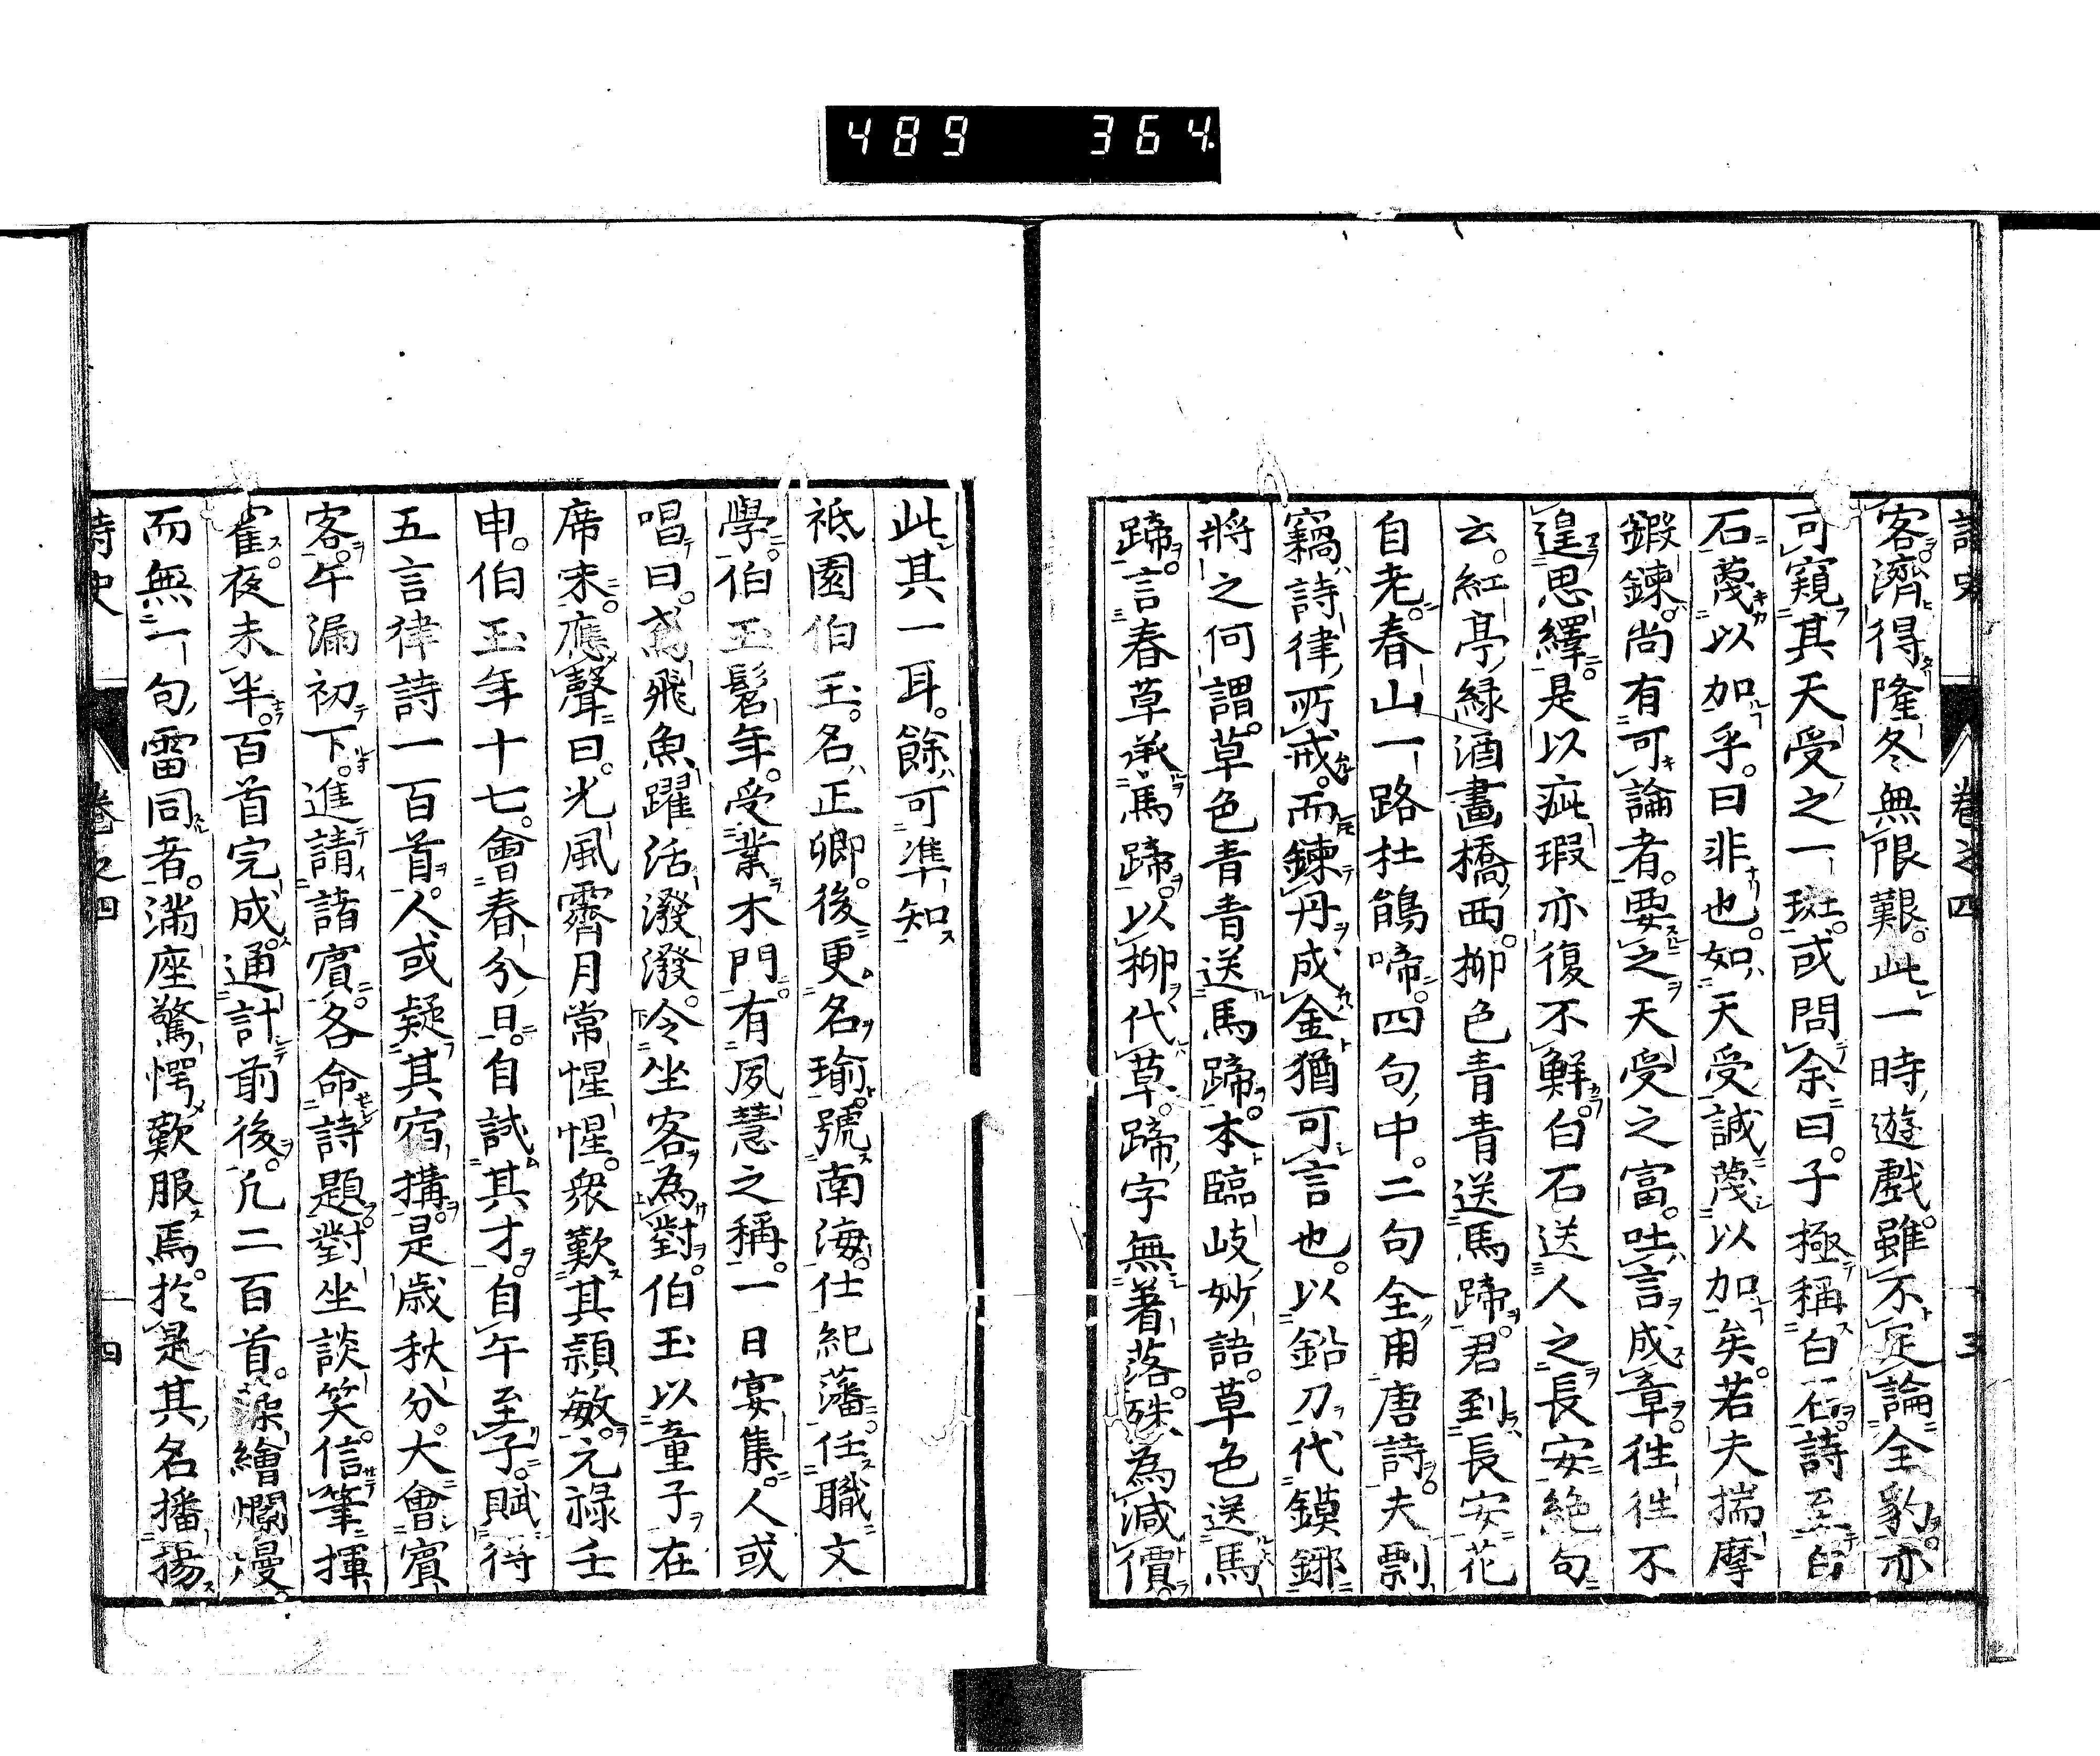 489 364
詩史 卷之四 三
客濟得隆冬無限艱此一時遊戲雖不足論全豹亦
可窺其天受之一斑或問余曰子極稱白石詩至白
石蔑以加乎曰非也如天受誠蔑以加矣若夫揣摩
鍛鍊尚有可論者要之天受之富吐言成章往往不
遑思繹是以疵瑕亦復不鮮白石送人之長安絶句
云紅亭綠酒畫橋西柳色青青送馬蹄君到長安花
自老春山一路杜鵑啼四句中二句全用唐詩夫剽
竊詩律所戒而鍊丹成金猶可言也以鉛刀代鏌鎁
將之何謂草色青青送馬蹄本臨岐妙語草色送馬
蹄言春草承馬蹄以柳代草蹄字無著落殊為減價
此其一耳餘可準知
祗園伯玉名正卿後更名瑜號南海仕紀藩任職文
學伯玉髫年受業木門有夙慧之稱一日宴集人或
唱曰鳶飛魚躍活潑潑令坐客為對伯玉以童子在
席末應聲曰光風霽月常惺惺衆歎其穎敏元祿壬
申伯玉年十七會春分日自試其才自午至子賦得
五言律詩一百首人或疑其宿搆是歲秋分大會賓
客午漏初下進請諸賓各命詩題對坐談笑信筆揮
霍夜未半百首完成通計前後凢二百首藻繪爛漫
而無一句雷同者滿座驚愕歎服焉於是其名播揚
詩史 卷之四 四